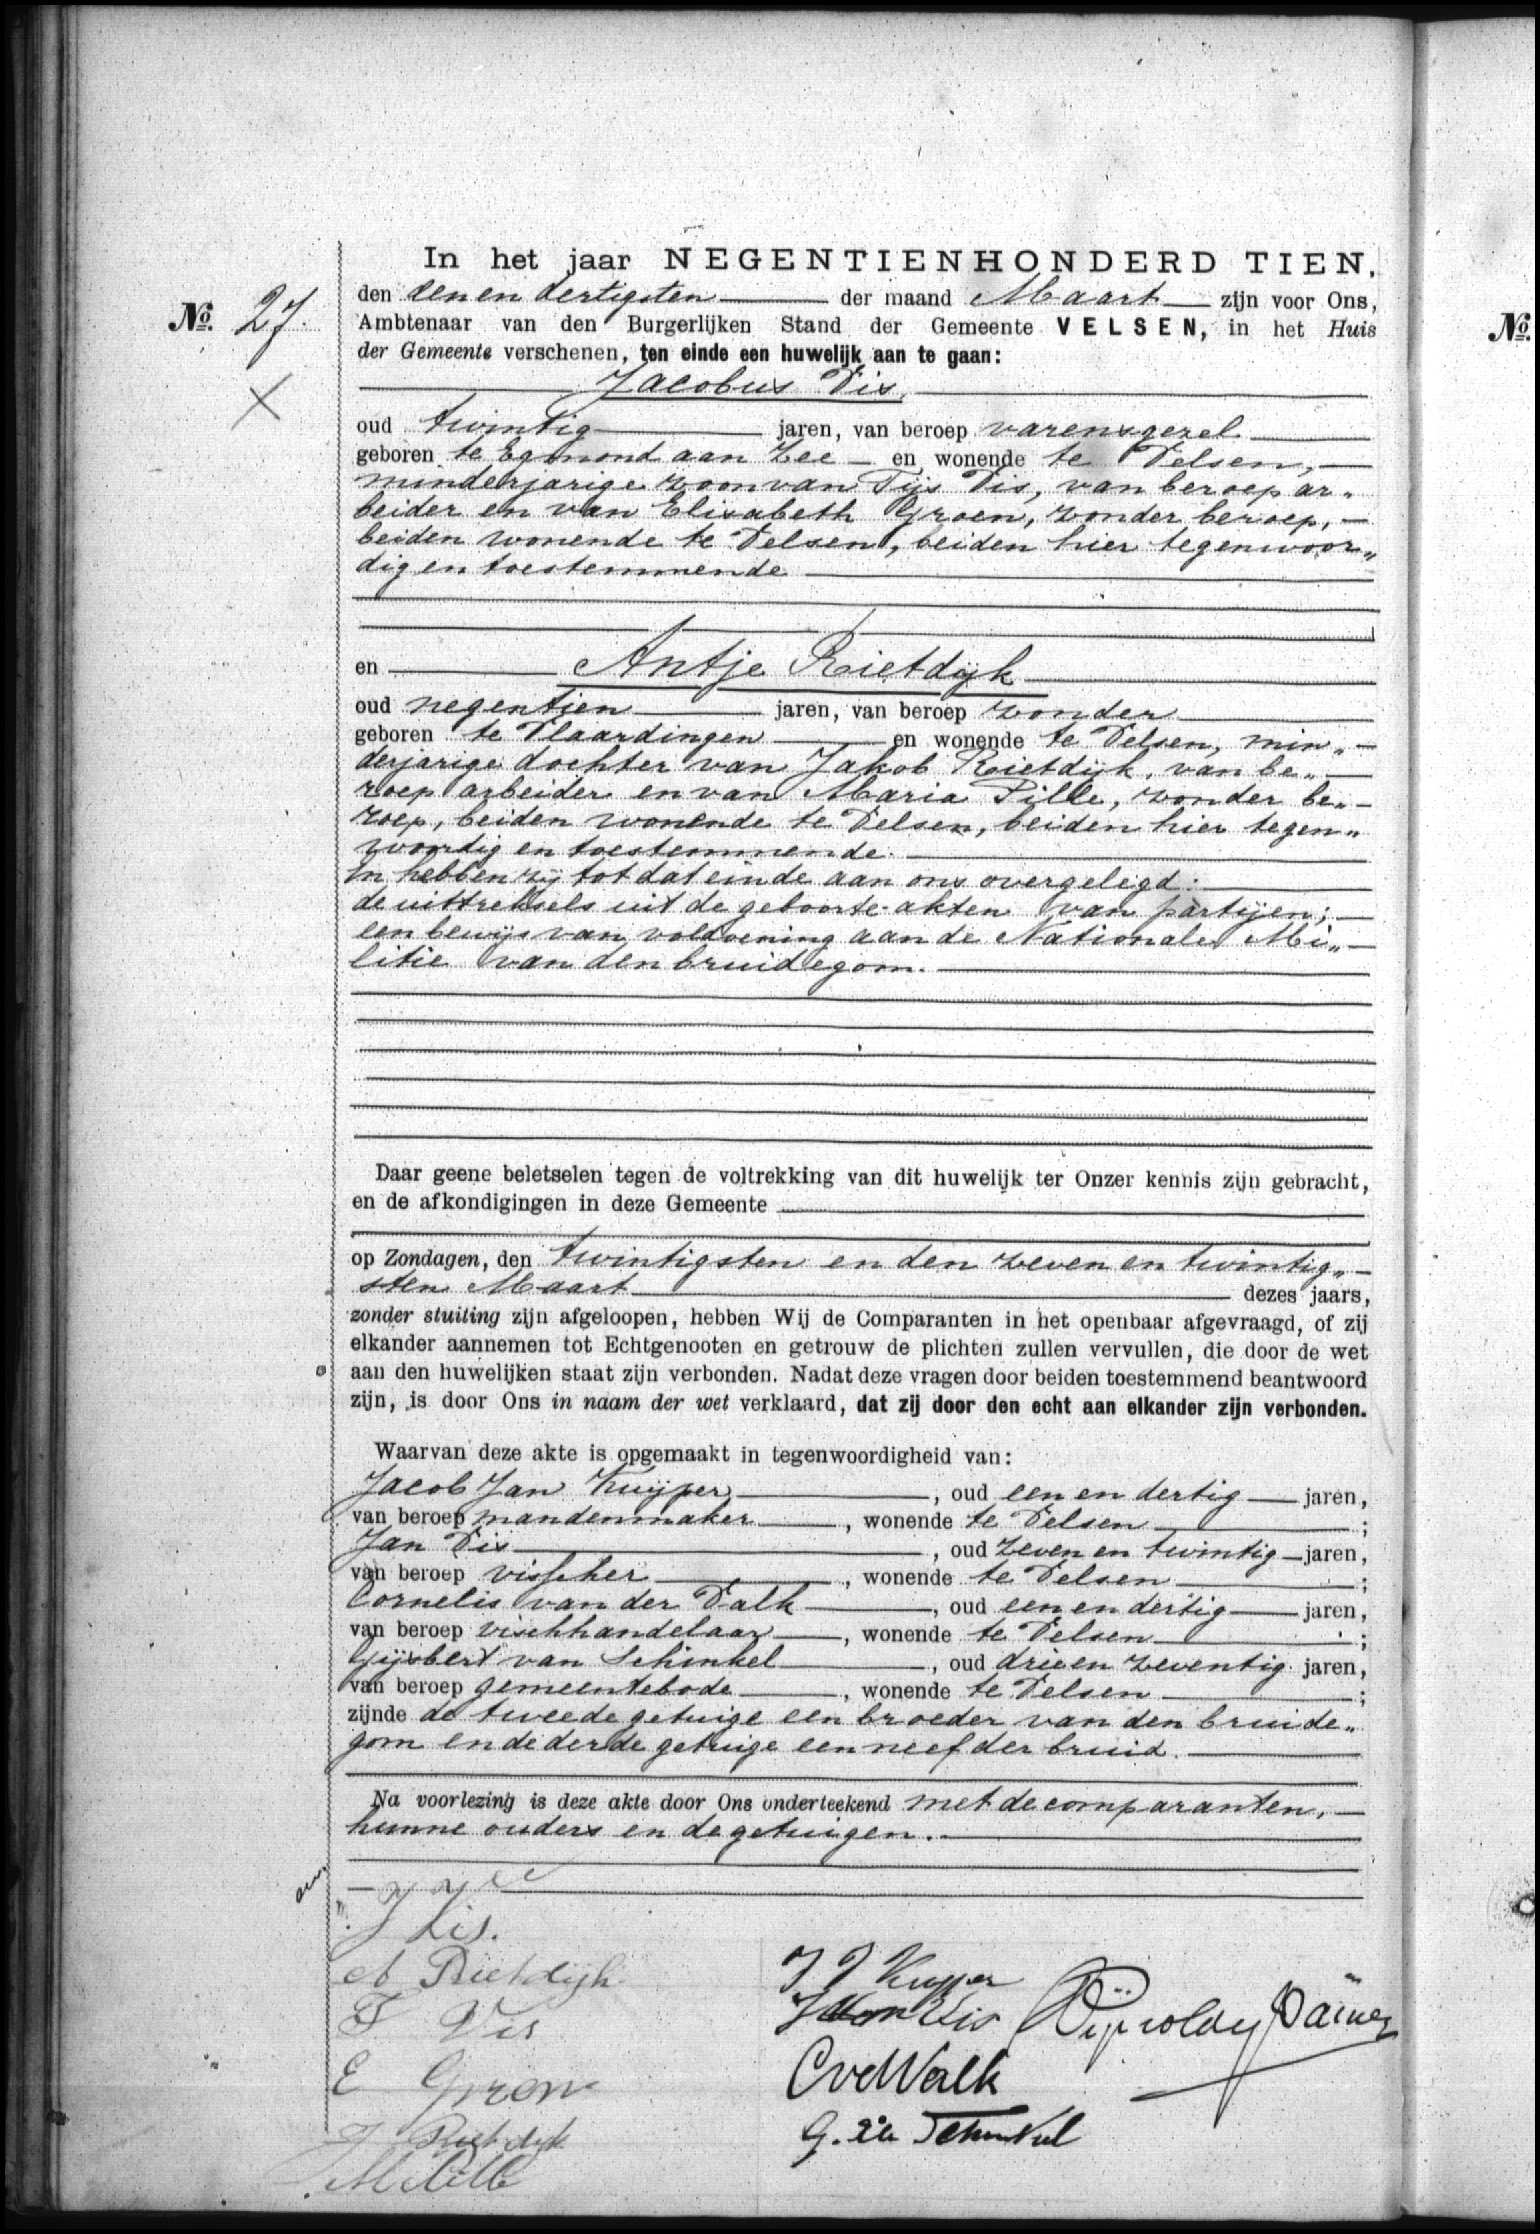 In het jaar NEGENTIENHONDERD TIEN,
No. 27. den een en dertigsten der maand Maart zijn voor Ons,
Ambtenaar van den Burgerlijken Stand der Gemeente VELSEN, in het Huis
der Gemeente verschenen, ten einde een huwelijk aan te gaan:
Jacobus Vis,
oud twintig jaren, van beroep varensgezel
geboren te Egmond aan Zee en wonende te Velsen,
minderjarige zoon van Tijs Vis, van beroep ar„
beider en van Elisabeth Groen, zonder beroep,
beiden wonende te Velsen, beiden hier tegenwoor„
dig en toestemmende
en Antje Rietdijk
oud negentien jaren, van beroep zonder
geboren te Vlaardingen en wonende te Velsen, min„
derjarige dochter van Jakob Rietdijk, van be„
roep arbeider en van Maria Pille, zonder be„
roep, beiden wonende te Velsen, beiden hier tegen„
woordig en toestemmende.
En hebben zij tot dat einde aan ons overgelegd:
de uittreksels uit de geboorte-akten van partijen;
een bewijs van voldoening aan de Nationale Mi„
litie van den bruidegom.
Daar geene beletselen tegen de voltrekking van dit huwelijk ter Onzer kennis zijn gebracht,
en de afkondigingen in deze Gemeente
op Zondagen, den twintigsten en den zeven en twintig„
sten Maart dezes jaars,
zonder stuiting zijn afgeloopen, hebben Wij de Comparanten in het openbaar afgevraagd, of zij
elkander aannemen tot Echtgenooten en getrouw de plichten zullen vervullen, die door de wet
aan den huwelijken staat zijn verbonden. Nadat deze vragen door beiden toestemmend beantwoord
zijn, is door Ons in naam der wet verklaard, dat zij door den echt aan elkander zijn verbonden.
Waarvan deze akte is opgemaakt in tegenwoordigheid van:
Jacob Jan Kuijper, oud een en dertig jaren,
van beroep mandenmaker, wonende te Velsen;
Jan Vis, oud zeven en twintig jaren,
van beroep visscher, wonende te Velsen;
Cornelis van der Valk, oud een en dertig jaren,
van beroep vischhandelaar, wonende te Velsen;
Gijsbert van Schinkel, oud drie en zeventig jaren,
van beroep gemeentebode, wonende te Velsen;
zijnde de tweede getuige een broeder van den bruide„
gom en de derde getuige een neef der bruid.
Na voorlezing is deze akte door Ons onderteekend met de comparanten,
hunne ouders en de getuigen.
J Vis.
A Rietdijk
T Vis
E Groen
J Rietdijk
M Pille
J J Kuyper
Jan Vis
CvdValk
G. van Schinkel
No.